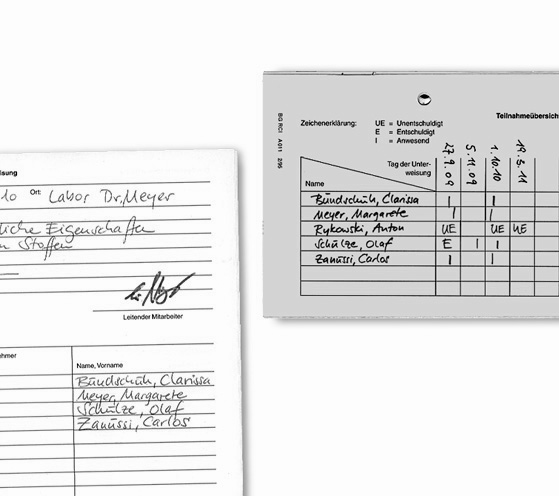 isung
Ort: Labor Dr. Meyer
liche Eigenschaften
n Stoffen
Leitender Mitarbeiter
ehmer
Name, Vorname
Bundschuh, Clarissa
Meyer, Margarete
Schulze, Olaf
Zanussi, Carlos
BG RCI A011 2/95
Zeichenerklärung: UE = Unentschuldigt
E = Entschuldigt
I = Anwesend
Teilnahmeübersich
Tag der Unter-
weisung
27.9.09 5.11.09 1.10.10 19.5.11
Name
Bundschuh, Clarissa I I
Meyer, Margarete I I
Rykowski, Anton UE UE UE
Schulze, Olaf E I I
Zanussi, Carlos I I